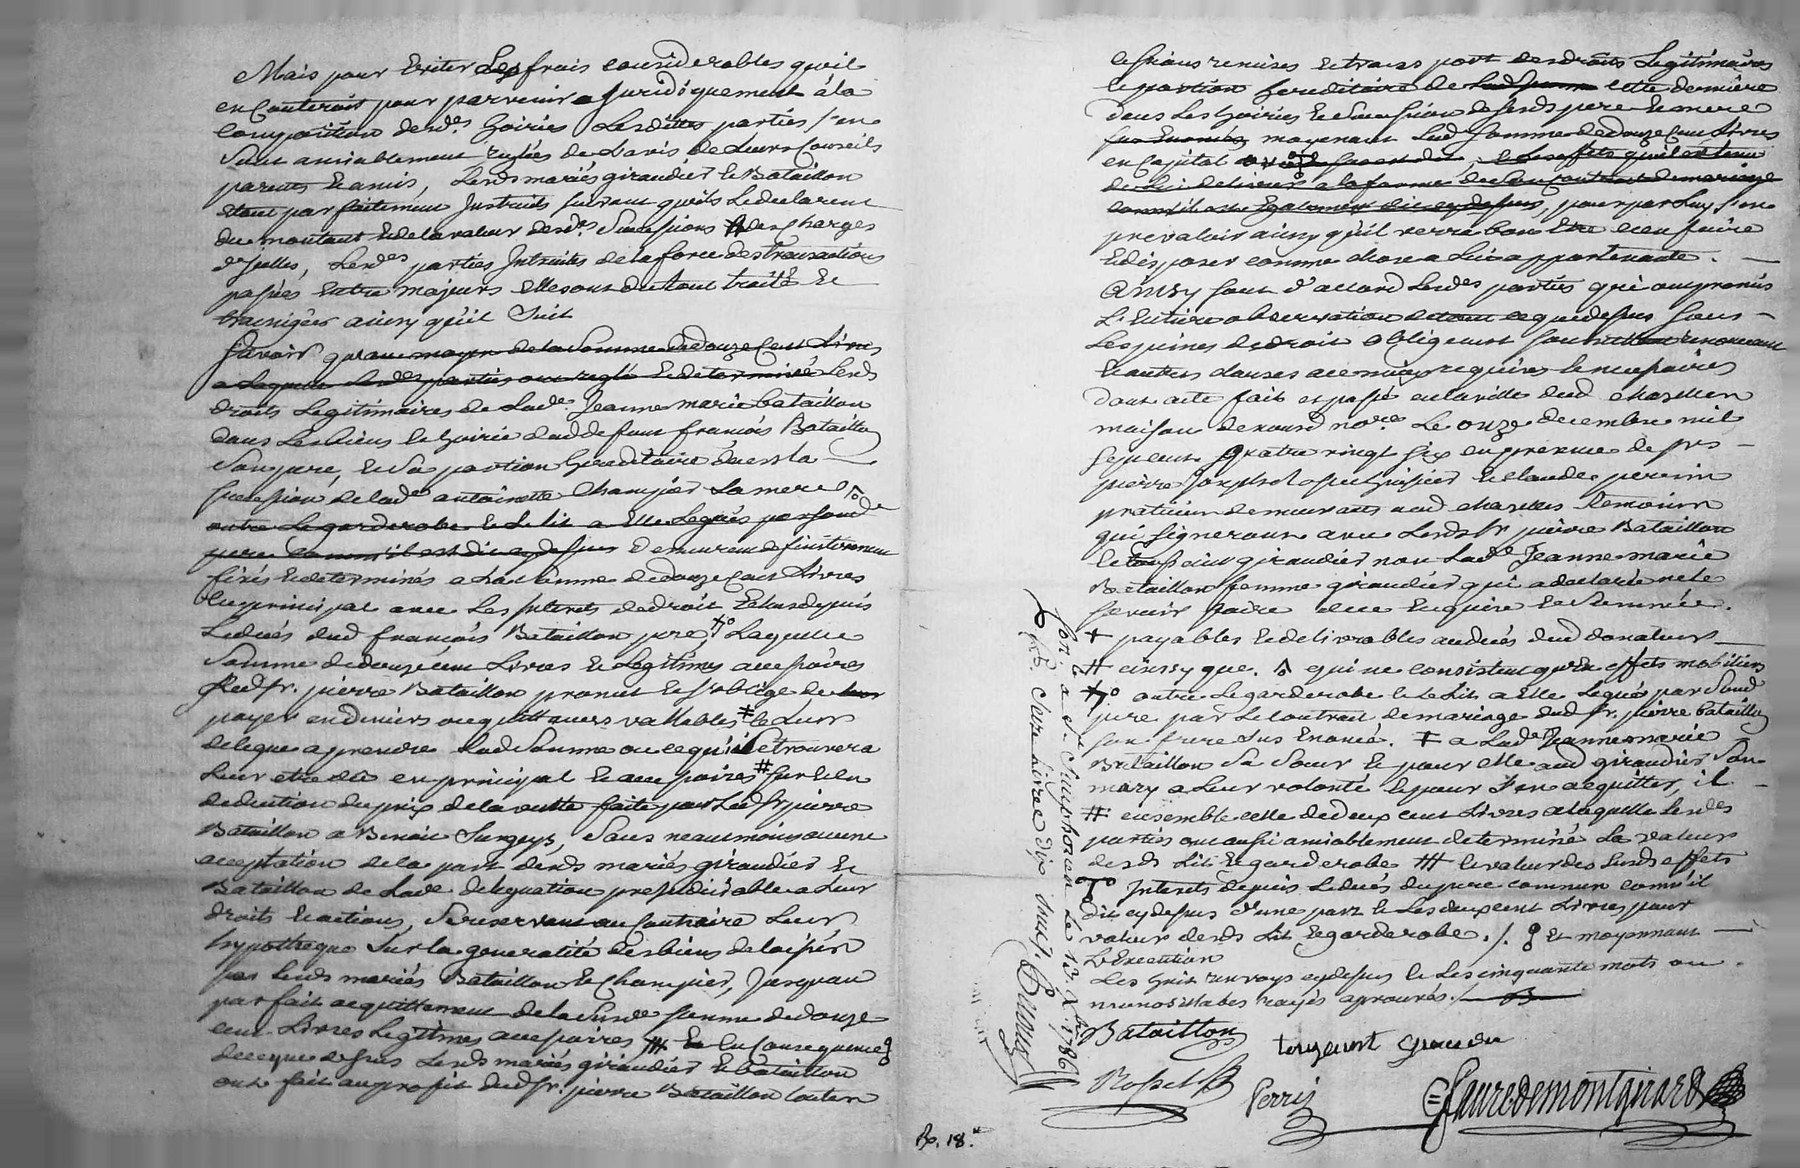 Mais pour Eviter Les frais considerables qu'il
en Couteroit pour parvenir a Juridiquement à la
composition desd.es hoiries Lesdittes parties s'en
Sont amiablement reglées de L'avis de Leurs Conseils
parents et amis, Lesds mariés giraudier et Bataillon
etant parfaitement Instruits suivant qu'ils Le declarent
du montant et de la valeur desd.es Successions # des charges
d'Icelles, Lesd.es parties Instruites de la force des transactions
passées Entre majeurs elles ont du tout traité et
transigées ainsy qu'il Suit
Savoir que au moyen de la Somme de douze Cent Livres
a laquelle Lesd.es parties ont reglé et determiné Lesds
droits Legitimaires de Lad.e Jeanne marie bataillon
dans Les biens et hoirie dud deffunt francois Bataillon
Son pere, et Sa portion hereditaire dans la
succession de lad.e antoinette Champier La mere
outre La garderobe et Le lit a Elle Legués par Sond
pere comme il est dit cy dessus demeurent definitivement
fixés et determinés a la Somme de douze Cent Livres
En principal avec Les Interets de droit depuis
Le decés dud francois Bataillon pere Laquelle
Somme de douze cent Livres et Legitimes accessoires
Led sr. pierre Bataillon promet et s'oblige de
payer en deniers ou quittances vallables ‡ et Leur
delegue a prendre Lad Somme ou ce qui Se trouvera
Leur etre du en principal et accessoires # sur et en
deduction du prix de la vente faite par Led sr pierre
Bataillon a Benoit Surgeys, Sans neantmoins aucune
acceptation de la part desds mariés giraudier et
Bataillon de Lad.e delegation prejudiciable a Leur
droits et actions, Se reservant au Contraire Leur
hypotheque Sur la generalité des biens delaissés
par Lesds mariés Bataillon et Champier, Jusqu'au
parfait acquittement de la Susd.e Somme de douze
cent Livres Legitimes accessoires # Et En Consequence
de ce que dessus Lesds mariés giraudier et bataillon
ont fait au profit dud sr. pierre Bataillon toutes
cessions remises et transport des droits Legitimaires
et portion hereditaire de cette derniere
dans Les hoiries et Succession de Sesds pere et mere
moyenant Lad Somme de douze Cent Livres
en Capital et Les effets qu'il est tenu
de Lui delivrer a la forme de Son Contract de mariage
comme il est Egalement dit cy dessus, pour par Luy s'en
prevaloir ainsy qu'il verra bon Etre et en faire
et disposer comme chose a Lui appartenante.
Ainsy sont d'accord Lesd.es parties qui ont promis
L'Entiere observation de tout ce que dessus sous
Les peines de droit obligeant renonceant
Et autres clauses a ce requises et necessaires
Dont acte fait et passé en la ville dud charlieu
maison de nousd no.re Le onze decembre mil
sept cent quatre vingt six en presence de srs
pierre Joseph et Claude perrin
praticien demeurants aud charlieu temoins
qui signeront avec Lesds sr pierre Bataillon
et giraudier non Lad.e Jeanne marie
Bataillon femme giraudier qui a declaré ne le
scavoir faire de ce Enquise et Sommée.
+ payables et delivrables au decés dud donateurs
# ainsy que. ^ qui ne consistent qu'en effets mobiliers
outre Le garderobe et Le Lit a Elle Legué par Sond
pere par Le contrat de mariage dud sr. pierre bataillon
son frere Sus Enoncé. ‡ a Lad.e Jeanne marie
Bataillon Sa Soeur et pour elle aud giraudier Son
mary a Leur volonté et pour s'en acquitter, il
# ensemble celle de deux cent Livres a laquelle Lesd.es
parties ont aussi amiablement determiné La valeur
desds Lit et garderobe # et valeur des Susds effets
Interets depuis Le decés du pere commun comme il
dit cy dessus d'une part et Les deux cent Livres pour
valeur desds Lit et garderobe ./. Et moyennant
L'Execution
Les huit renvoys cy dessus et Les cinquante mots ou
monosillabes rayés aprouvés ./.
Bataillon
Giraudier
Rosset
Perrin
Faure de montgirard
Con.lé a St. Simphorien Le 13 Xbre 1786
Reçu dix Livres dix sous
Rx. 18.